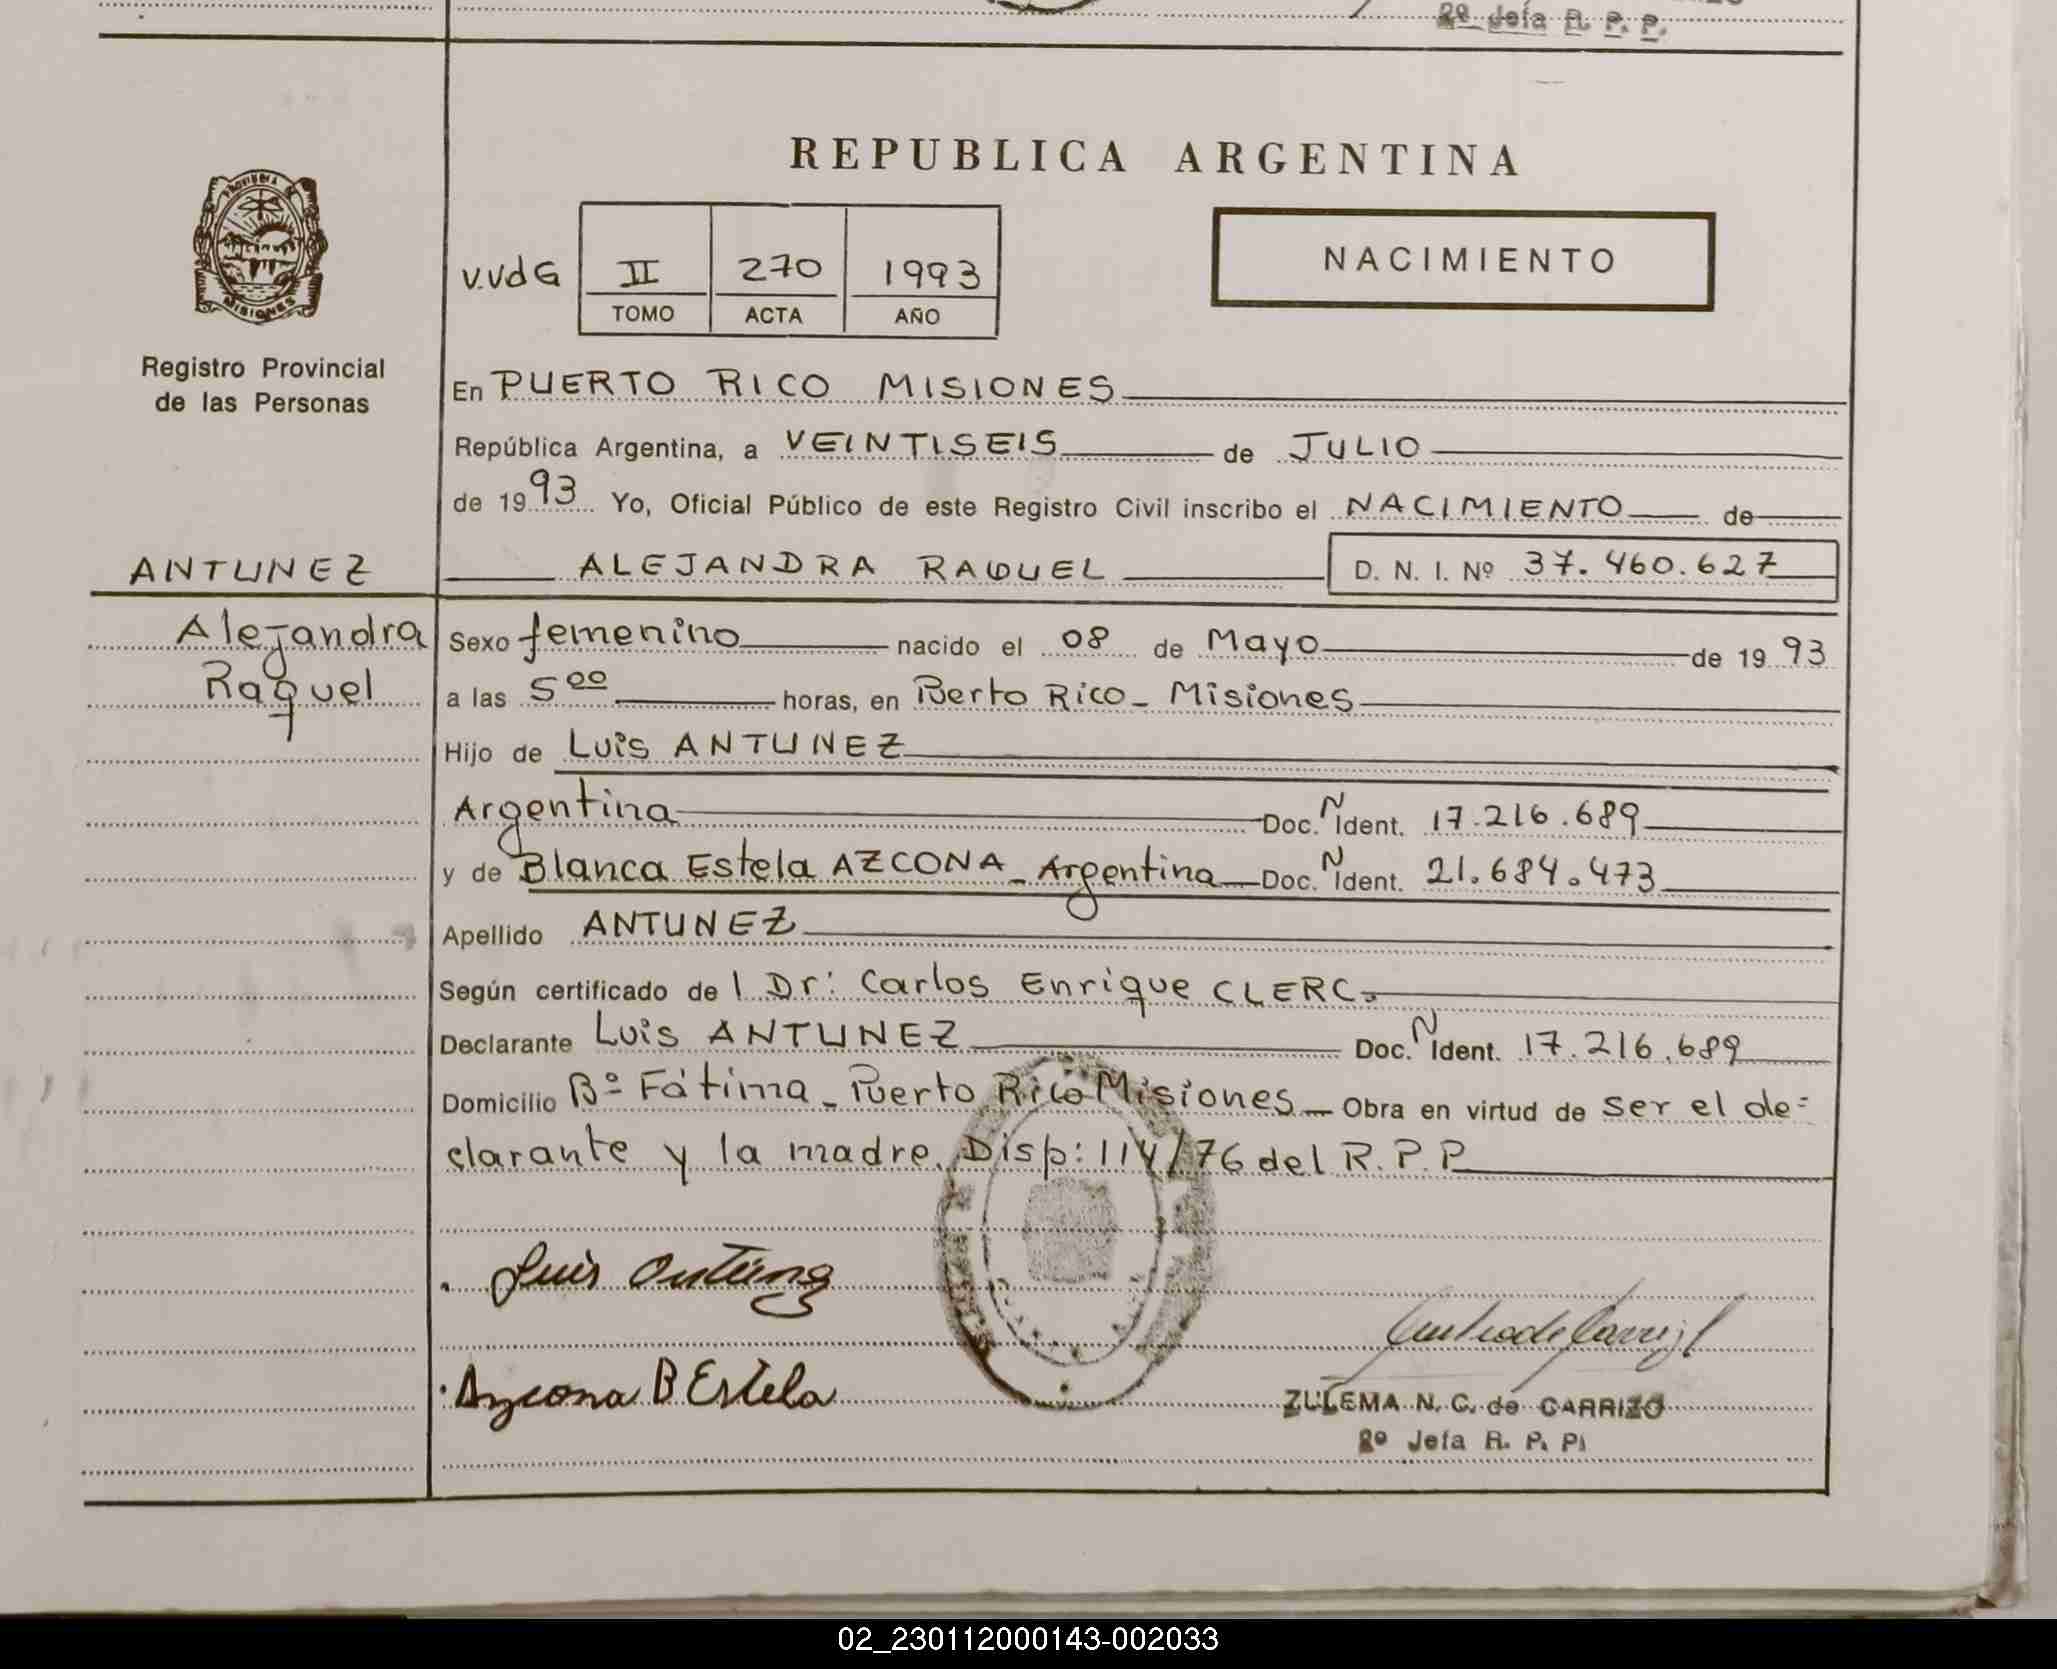 2º Jefa R. P. P.
REPUBLICA ARGENTINA
PROVINCIA DE
MISIONES
V.VdG II 270 1993
TOMO ACTA AÑO
NACIMIENTO
Registro Provincial
de las Personas
En PUERTO RICO MISIONES
República Argentina, a VEINTISEIS de JULIO
de 1993 Yo, Oficial Público de este Registro Civil inscribo el NACIMIENTO de
ANTUNEZ ALEJANDRA RAQUEL D. N. I. Nº 37.460.627
Alejandra Sexo femenino nacido el 08 de Mayo de 1993
Raquel a las 5 00 horas, en Puerto Rico - Misiones
Hijo de Luis ANTUNEZ
Argentina Doc. N Ident. 17.216.689
y de Blanca Estela AZCONA - Argentina Doc. N Ident. 21.684.473
Apellido ANTUNEZ
Según certificado del Dr: Carlos Enrique CLERC.
Declarante Luis ANTUNEZ Doc. N Ident. 17.216.689
Domicilio Bº Fátima - Puerto Rico Misiones - Obra en virtud de ser el de=
clarante y la madre. Disp: 114/76 del R.P.P
Luis Antunez
Azcona B Estela
ZULEMA N. C. de CARRIZO
2º Jefa R. P. P.
02_230112000143-002033